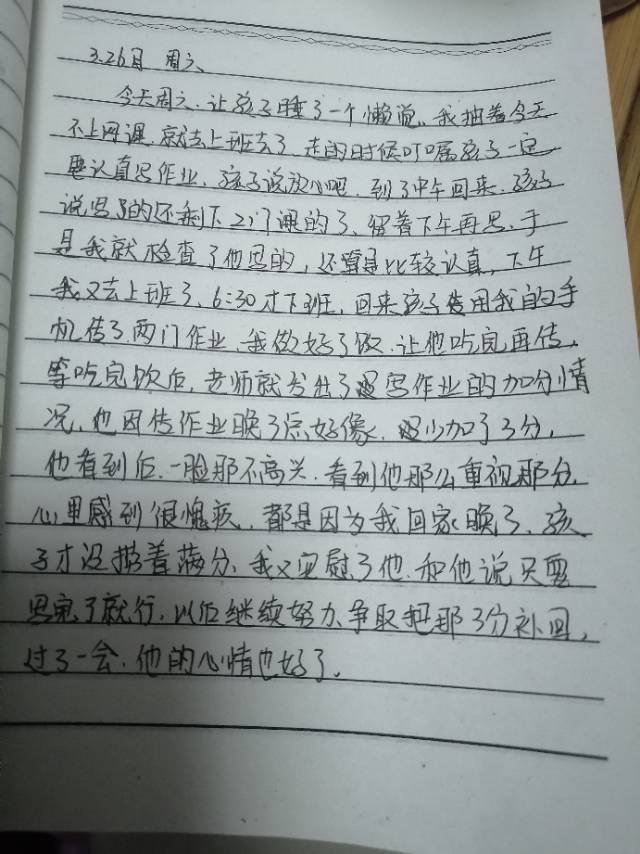 3.26日 周六、
今天周六.让孩子睡了一个懒觉。我抽着今天
不上网课.就去上班去了.走的时候叮嘱孩子一定
要认真写作业、孩子说放心吧.到了中午回来.孩子
说写了的还剩下2门课的了、留着下午再写.于
是我就检查了他写的,还算是比较认真,下午
我又去上班了、6:30才下班,回来孩子使用我的手
机传了两门作业、我做好了饭.让他吃完再传,
等吃完饭后,老师就发出了写作业的加分情
况,他因传作业晚了点好像.少加了3分,
他看到后.一脸那不高兴.看到他那么重视那分,
心里感到很愧疚,都是因为我回家晚了、孩
子才没挣着满分、我又安慰了他.和他说只要
写完了就行,以后继续努力、争取把那3分补回,
过了一会.他的心情也好了.